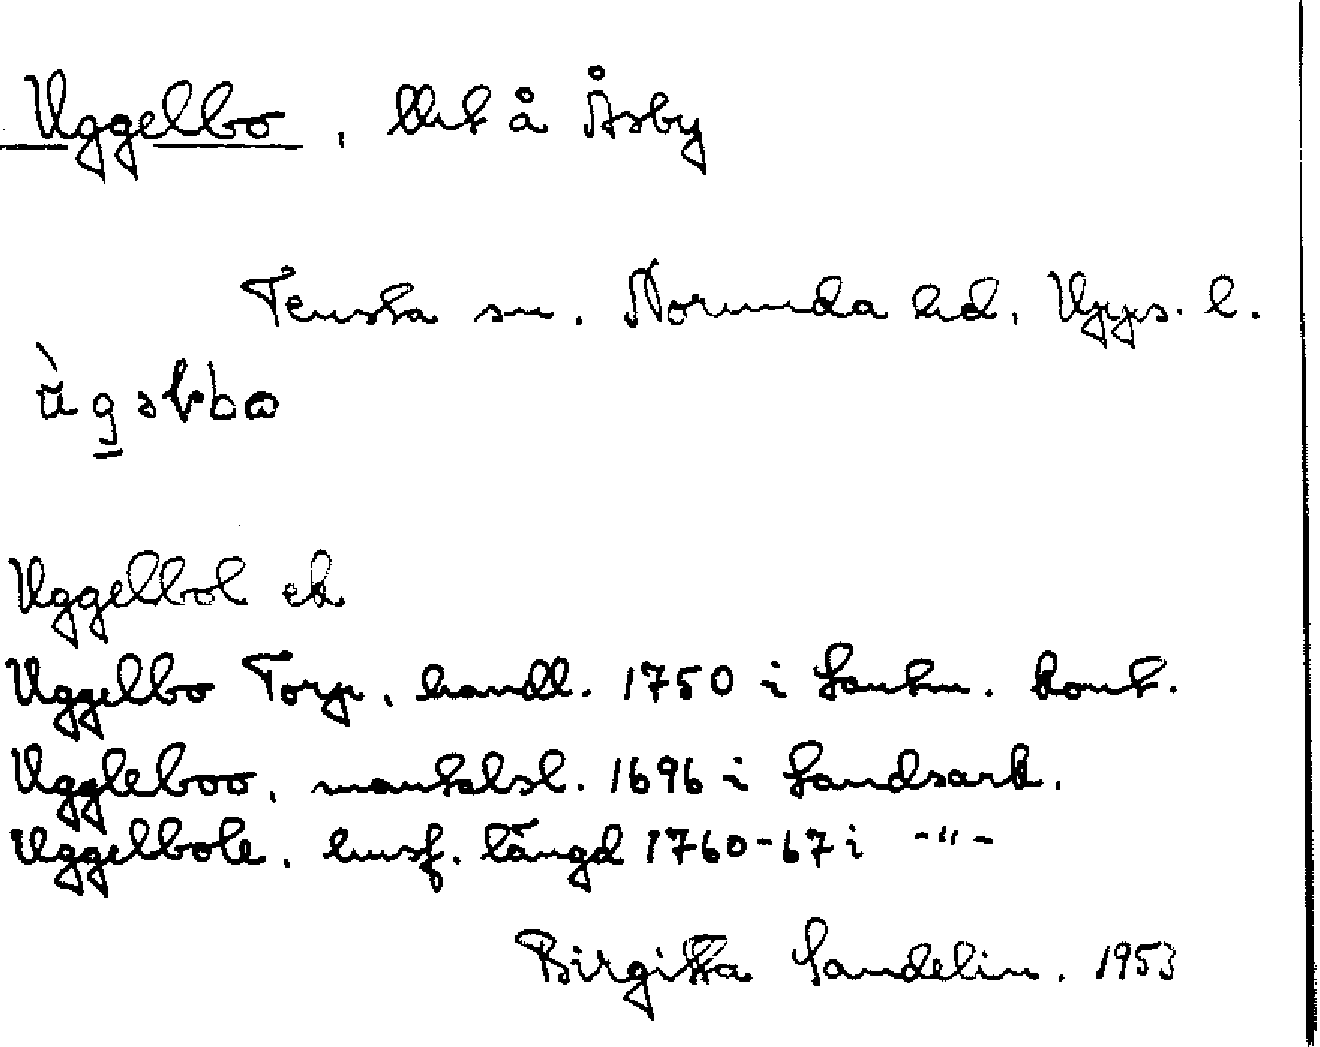 Uggelbo, lht å Åsby
Tensta sn. Norunda hd, Upps. l.
ùgəlbo
Uggelbol ek
Uggelbo Torp, handl. 1750 i Lantm. kont.
Uggleboo, mantalsl. 1696 i Landsark.
Uggelbole, husf. längd 1760-67 i -"-
Birgitta Sandelin. 1953